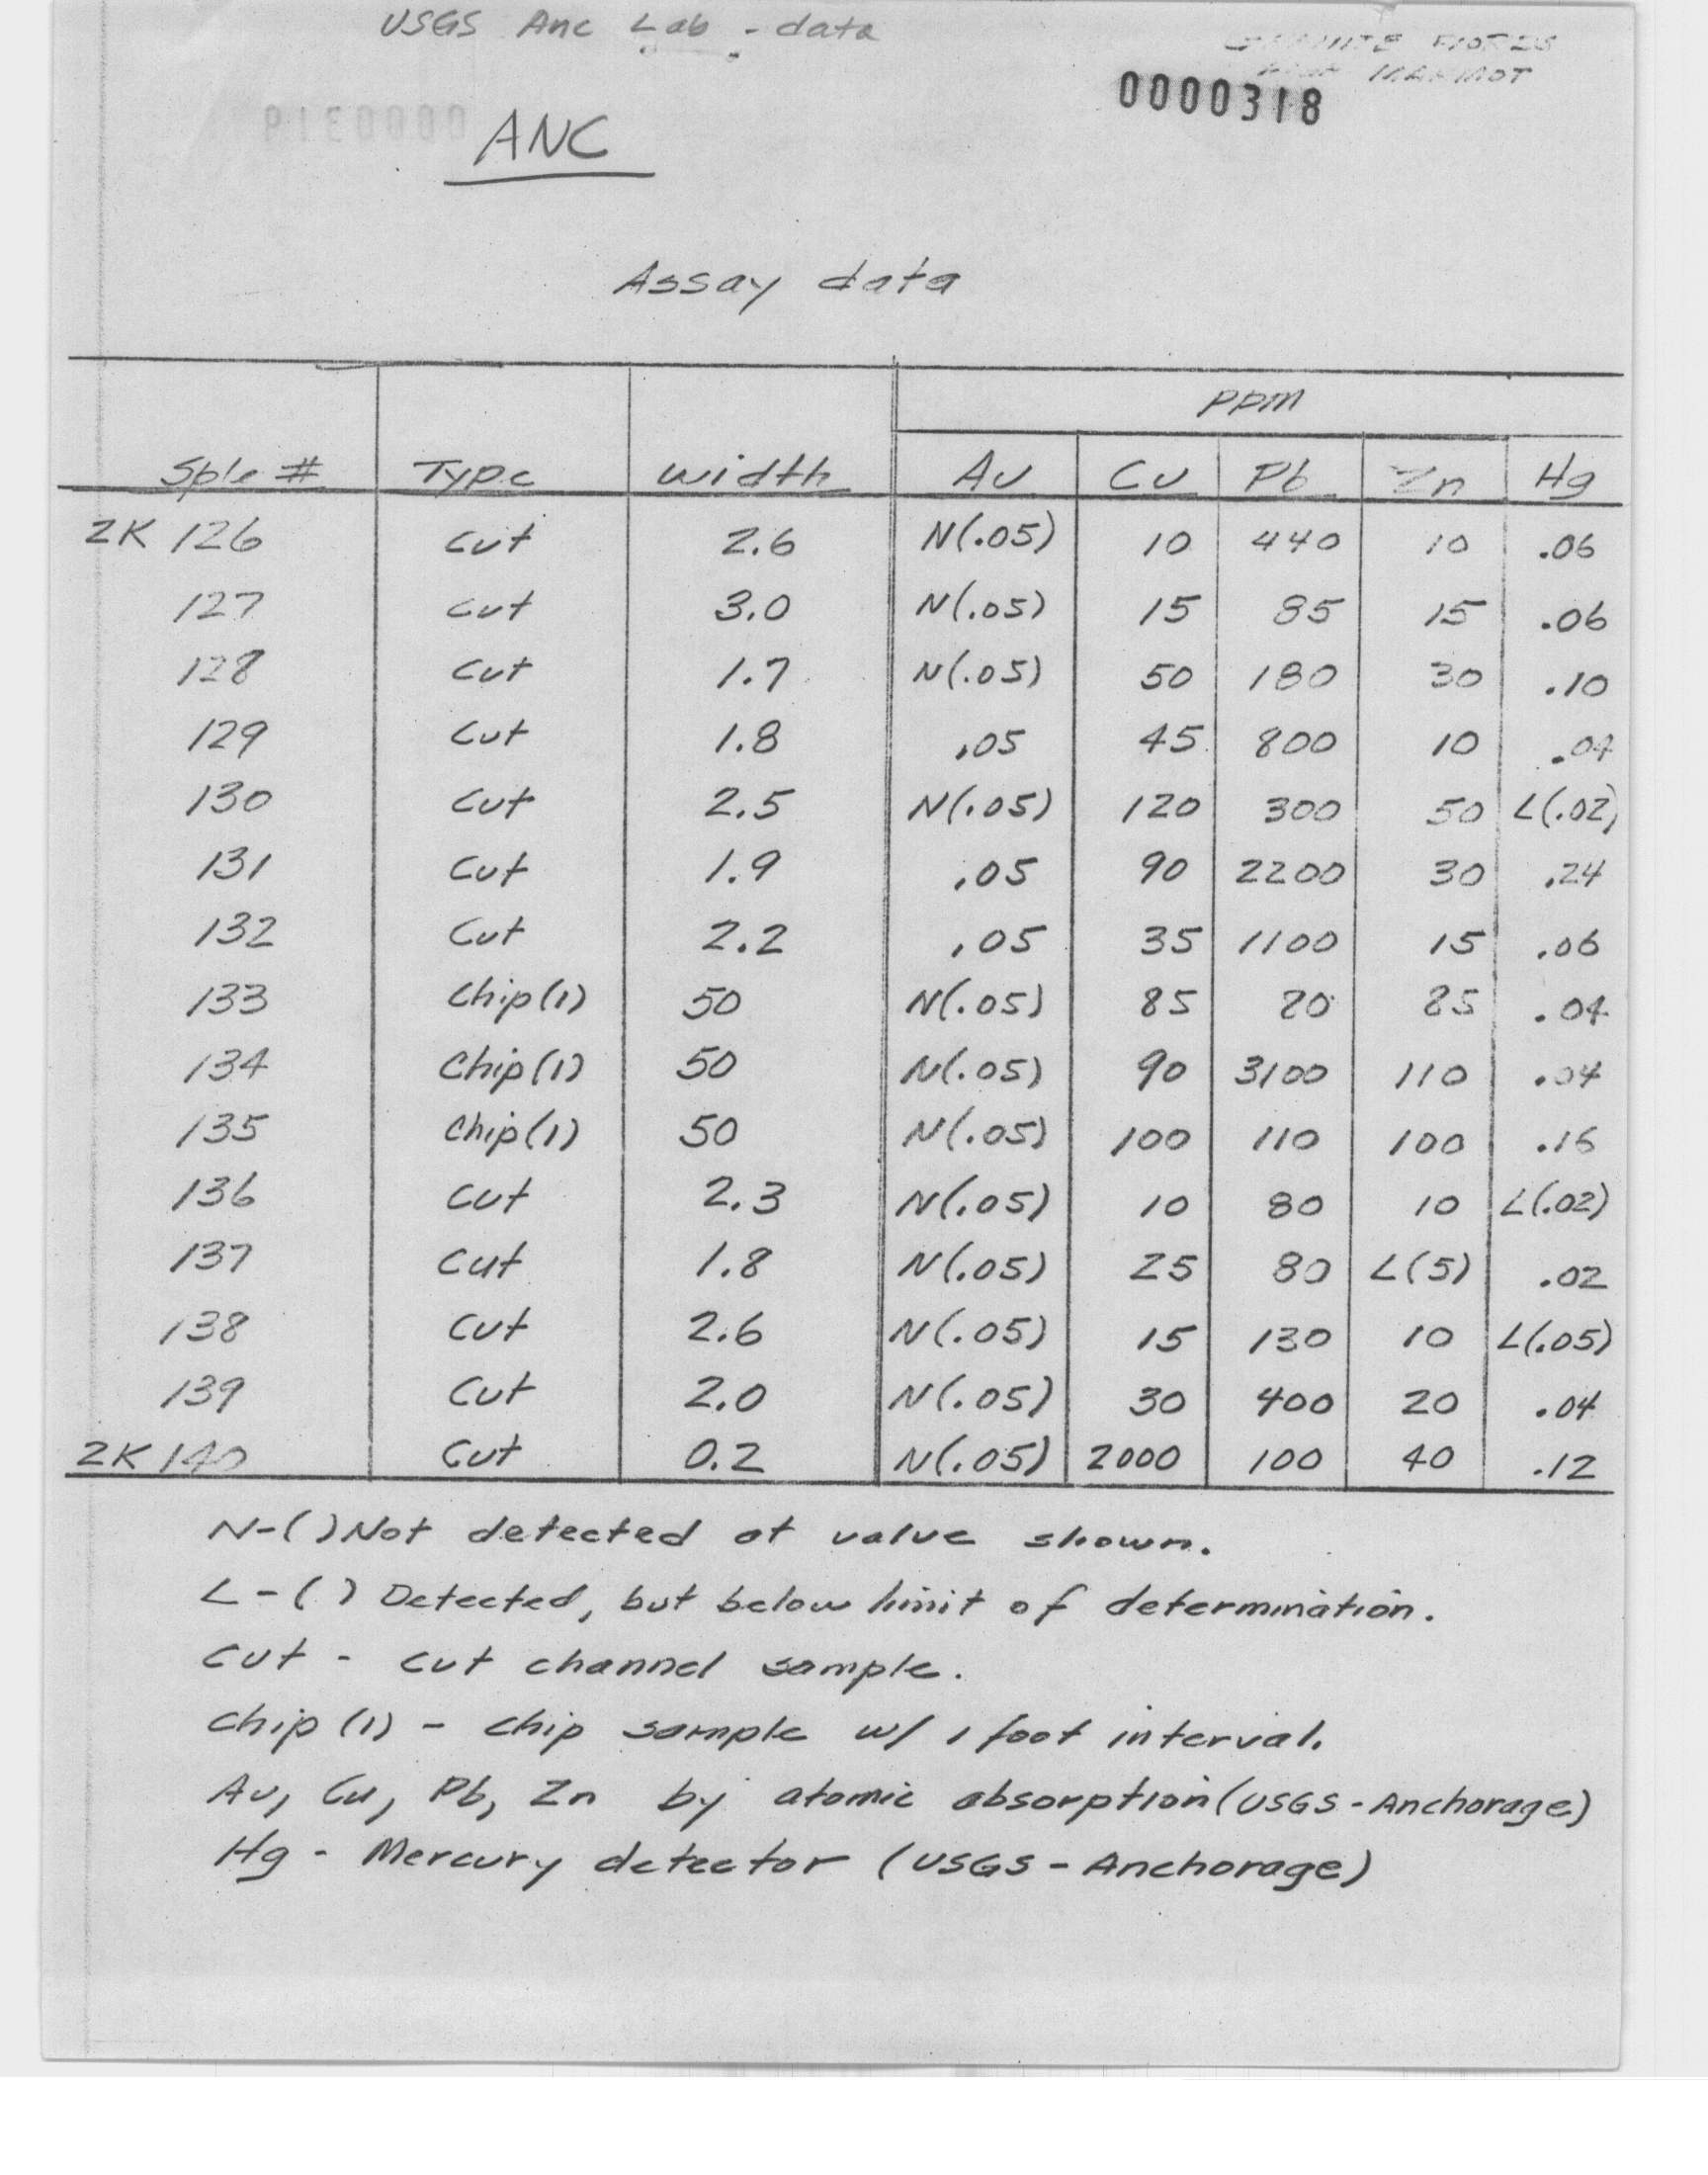 USGS Anc Lab - data
MARMOT
0000318
ANC
Assay data
ppm
Sple # Type width Au Cu Pb Zn Hg
2K 126 Cut 2.6 N(.05) 10 440 10 .06
127 Cut 3.0 N(.05) 15 85 15 .06
128 Cut 1.7 N(.05) 50 180 30 .10
129 Cut 1.8 .05 45 800 10 .04
130 Cut 2.5 N(.05) 120 300 50 L(.02)
131 Cut 1.9 .05 90 2200 30 .24
132 Cut 2.2 .05 35 1100 15 .06
133 Chip(1) 50 N(.05) 85 20 85 .04
134 Chip(1) 50 N(.05) 90 3100 110 .04
135 Chip(1) 50 N(.05) 100 110 100 .16
136 Cut 2.3 N(.05) 10 80 10 L(.02)
137 Cut 1.8 N(.05) 25 80 L(5) .02
138 Cut 2.6 N(.05) 15 130 10 L(.05)
139 Cut 2.0 N(.05) 30 400 20 .04
2K 140 Cut 0.2 N(.05) 2000 100 40 .12
N-( ) Not detected at value shown.
L-( ) Detected, but below limit of determination.
Cut - cut channel sample.
Chip (1) - chip sample w/ 1 foot interval.
Au, Cu, Pb, Zn by atomic absorption (USGS - Anchorage)
Hg - Mercury detector (USGS - Anchorage)